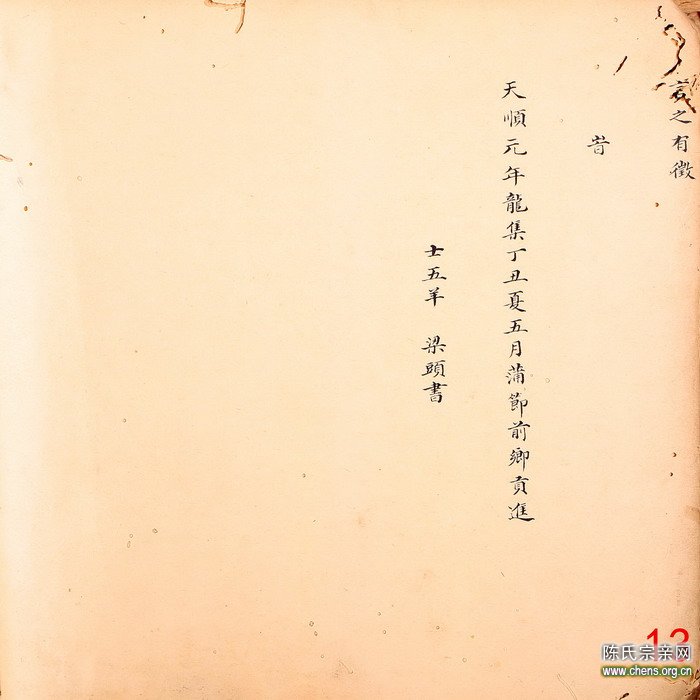 言之有徵
旹
天順元年龍集丁丑夏五月蒲節前鄉貢進
士五羊 梁頭書
13
陈氏宗亲网
www.chens.org.cn